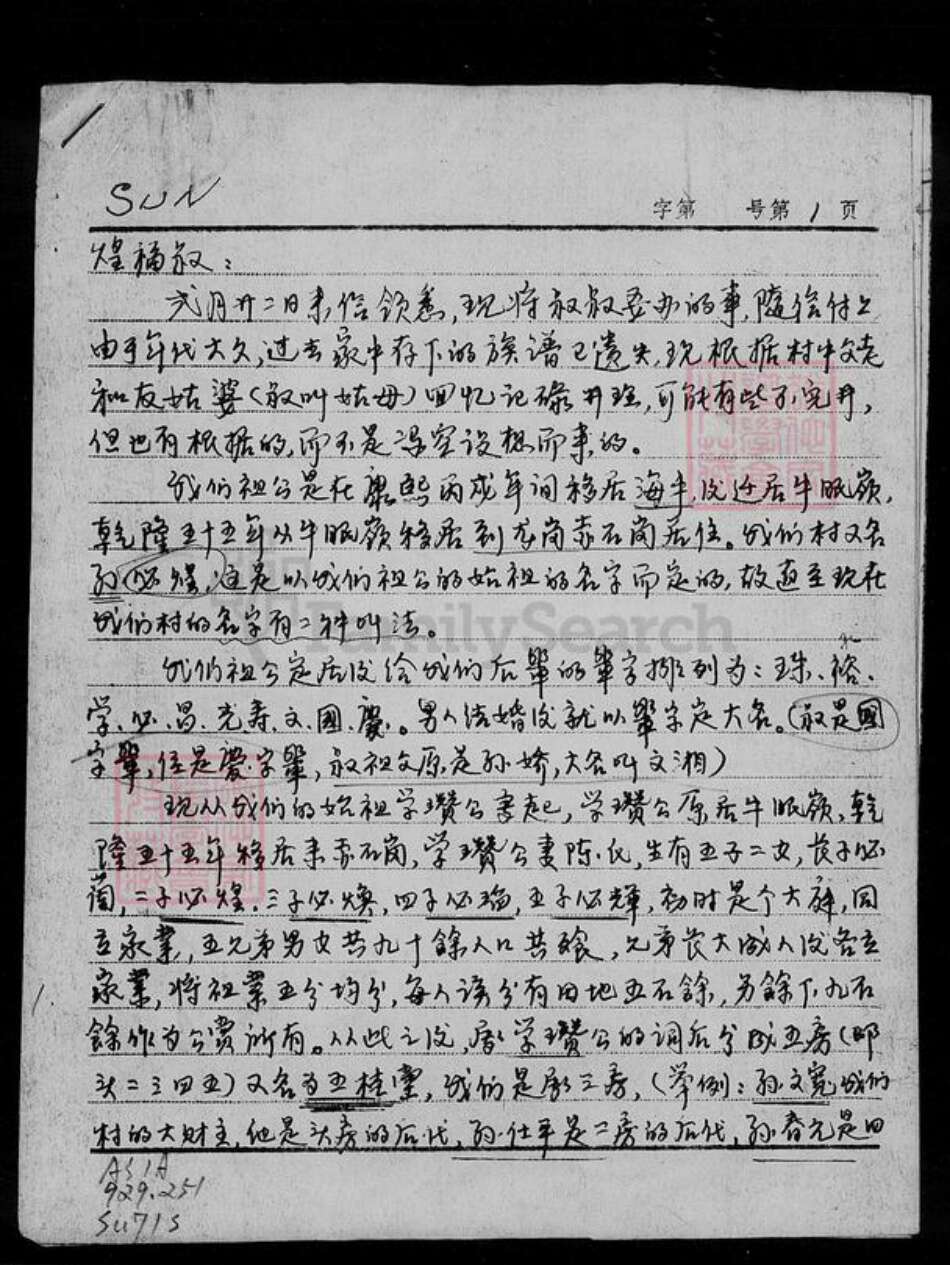 SUN
字第 号第 1 页
煌福叔：
弍月廿二日来信领悉,现将叔叔委办的事,随信付上
由于年代太久,过去家中存下的族谱已遗失,现根据村中父老
和友姑婆(叔叫姑母)回忆记录并理,可能有些不完并,
但也有根据的,而不是凭空设想而来的。
我们祖公是在康熙丙戌年间移居海丰,后迁居牛眠嶺,
乾隆五十五年从牛眠嶺移居到龙岗赤石岗居住。我们村又名
孙必煌,这是以我们祖公的始祖的名字而定的,故直至现在
我们村的名字有二种叫法。
我们祖公定居后给我们后輩的輩字排列为：珠、裕、
学、必、昌、光、寿、文、國、慶、。男人结婚后就以輩字定大名。(叔是國
字輩,侄是慶字輩,叔祖父原是孙娇,大名叫文湘)
现从我们的始祖学瓚公書起,学瓚公原居牛眠嶺,乾
隆五十五年移居来赤石岗,学瓚公妻陈氏,生有五子二女,长子必
蔺,二子必煌,三子必煥,四子必瑞,五子必輝,初时是个大群,同
立家業,五兄弟男女共九十餘人口共飱,兄弟长大成人后各立
家業,将祖業五分均分,每人该分有田地五石餘,另餘下九石
餘作为公費所有。从此之后,學瓚公的词后分成五房(即
头二三四五)又名为五桂堂,我们是第三房,(举例：孙文寬我们
村的大财主,他是头房的后代,孙仕平是二房的后代,孙春元是四
ASIA
929.251
Su71s
FamilySearch